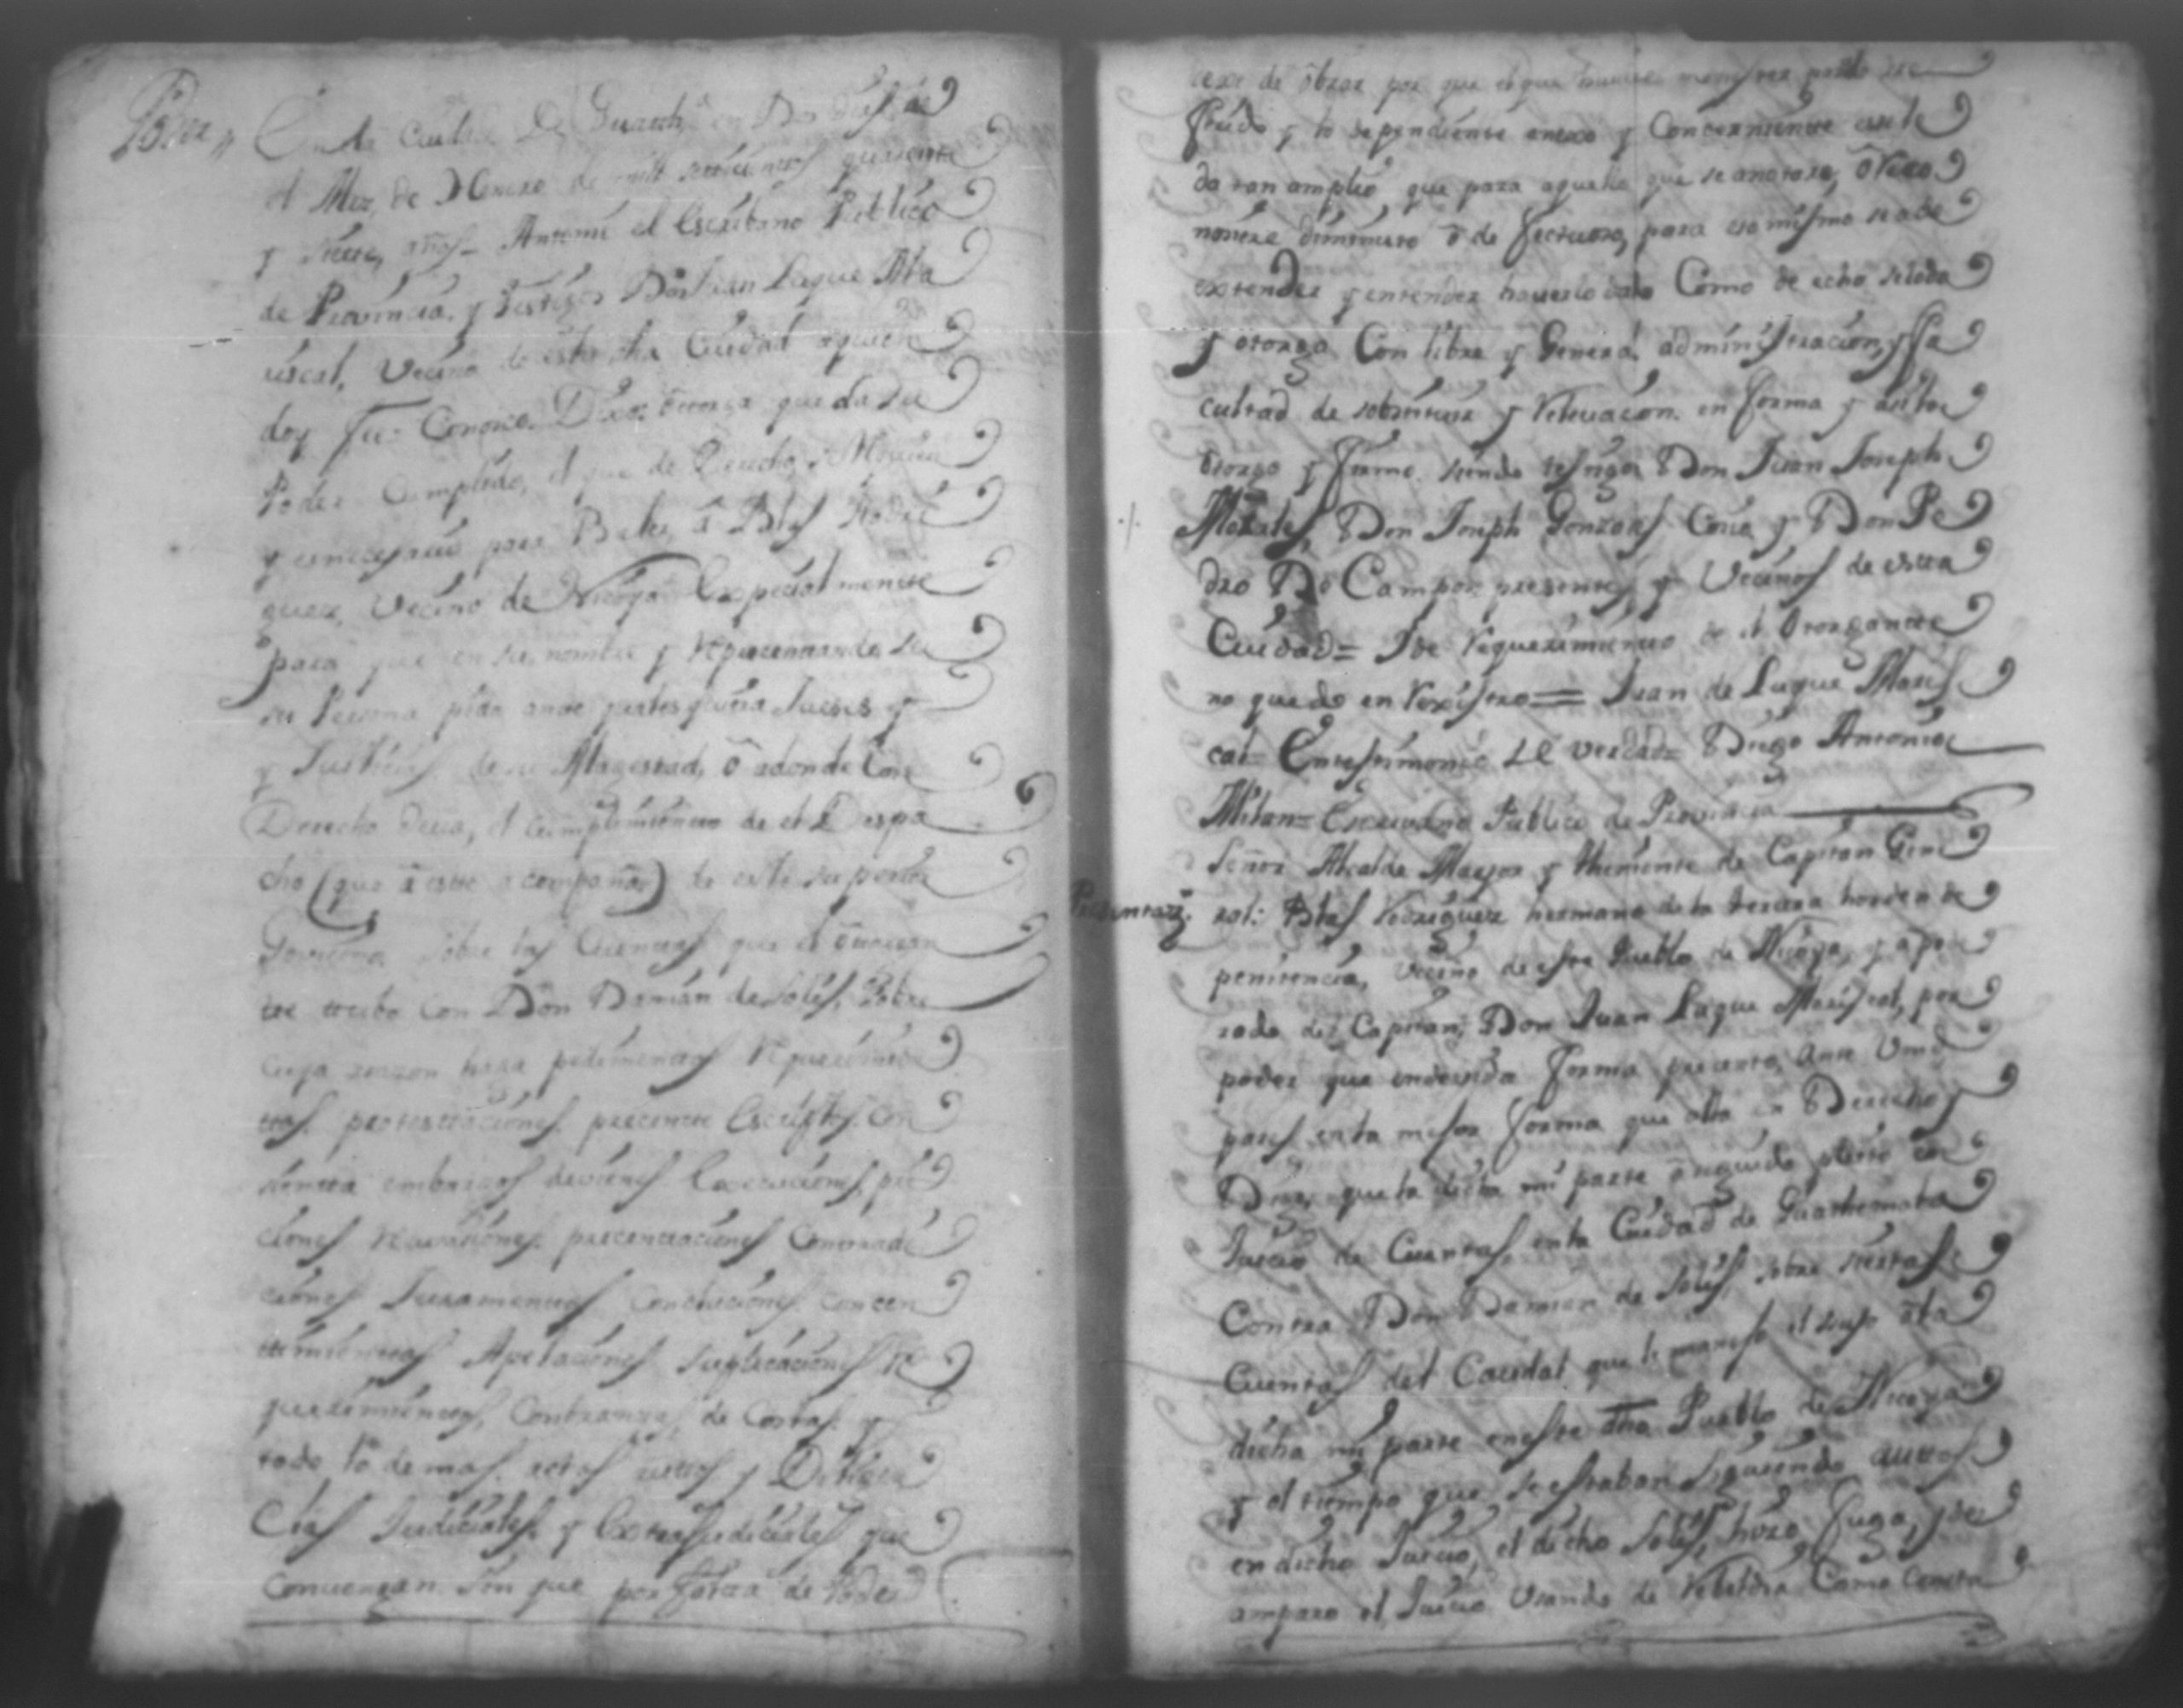 Poder
En la Ciudad de Guatha en Dos dias de
el Mez, de Henero de mill setecientos quarenta
y siete, años_ Antemi el Escribano Publico
de Provincia, y testigos Don Juan Luque Ma
riscal, Vecino de esta dha Ciudad a quien
doy fee Conosco. Dixo: otorga que da su
Poder Cumplido, el que de Derecho se
y es necesario para Baler, â Blas Rodri
guez, Vecino de Nicoya Expecialmente
para que en su nombre y Representando su
su Persona pida ante quales quiera Jueses y
y Justicias de su Magestad, ô adonde Con
Derecho deva, el Cumplimiento de el Despa
cho (que â este acompaña) de este superior
Govierno sobre las Cuentas que el otorgan
te tubo con Don Damian de Solis, Sobre
cuya razon hara pedimentos Requerimien
tos, protestaciones, precente Escriptos, con
sienta embargos de vienes Execuciones, pri
ciones Recusaciones, precentaciones Contradi
ciones Juramentos Conclusiones, concen
timientos Apelaciones Suplicaciones Re
querimientos, Cobranzas de Costas y
todo lo demas actos autos y Diligen
Cias Judiciales y Extrajudiciales que
Convengan Sin que por falta de Poder
dexe de obrar por que el que fuere menester para lo re
ferido y lo dependiente anexo y Concerniente ese le
da tan amplio que para aquello que se anotare, ô Reco
nosiere diminuto ô defectuoso, para eso mismo se ade
extender y entender haverlo dado Como de echo selo da
y otorga Con libre y General administracion, y fa
cultad de sobstituir y Relevacion en forma y asi lo
otorgo y firmo siendo testigos Don Juan Joseph
Morales, Don Joseph Gonzales Coria y Don Pe
dro De Campos presentes y Vecinos de esta
Ciudad= Ide Requerimiento de el Otorgante
no quedo en Rexistro= Juan de Luque Maris
cal= Entestimonio de verdad= Diego Antonio
Milan= Escrivano Publico de Provincia
Presentazn.
Señor Alcalde Mayor y theniente de Capitan Gene
ral: Blas Rodriguez hermano de la tersera horden de
penitencia, Vecino de este Pueblo de Nicoya, y apo
rado del Capitan, Don Juan Luque Mariscal, por
poder que en devida forma precento, ante Vmd
paresco en la mejor forma que alla en Derecho y
Digo, que la dicha mi parte â seguido pleito en
Juicio de Cuentas, en la Ciudad de Guathemala
Contra Don Damian de Solis, sobre siertas
Cuentas del Caudal que le manejo el susod â la
dicha mi parte en este dho Pueblo de Nicoya
y al tiempo que se estaban siguiendo autos
en dicho Juicio, el dicho Solis, hizo fuga, y de
amparo el Juicio Usando de Rebeldia Como consta